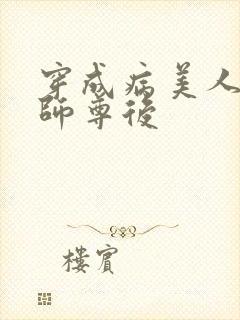 穿成病美人
師尊後
樓賓